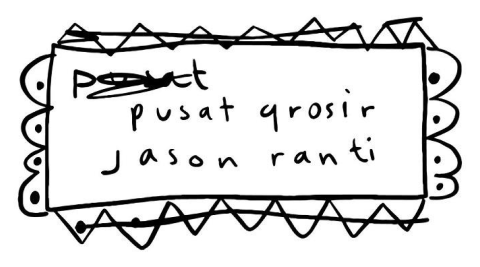 pusat grosir
Jason ranti